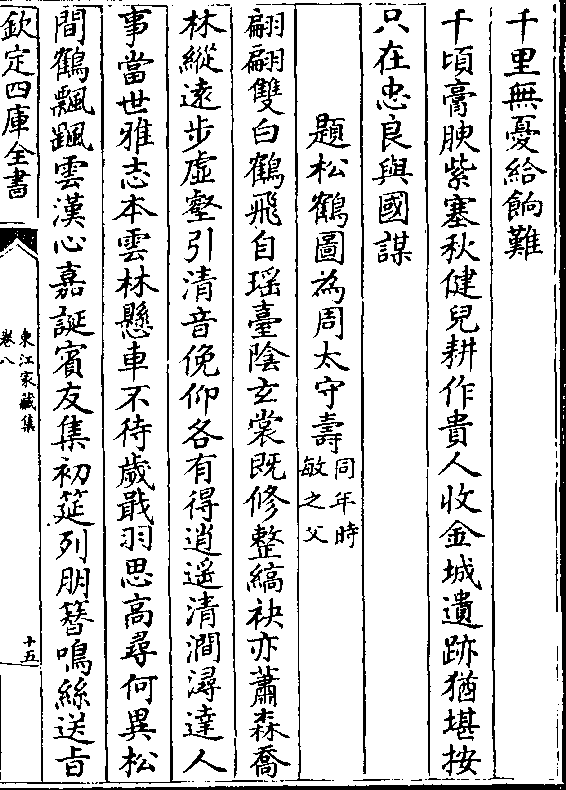 千里無憂給餉難
千頃膏腴紫塞秋健兒耕作貴人收金城遺跡猶堪按
只在忠良與國謀
題松鶴圖為周太守壽同年時敏之父
翩翩雙白鶴飛自瑶臺陰玄裳既修整縞袂亦蕭森喬
林縱遠步虛壑引清音俛仰各有得逍遥清澗潯達人
事當世雅志本雲林懸車不待歲戢羽思高尋何異松
間鶴飄颻雲漢心嘉誕賓友集初筵列朋簪鳴絲送旨
欽定四庫全書
東江家藏集
卷八
十五